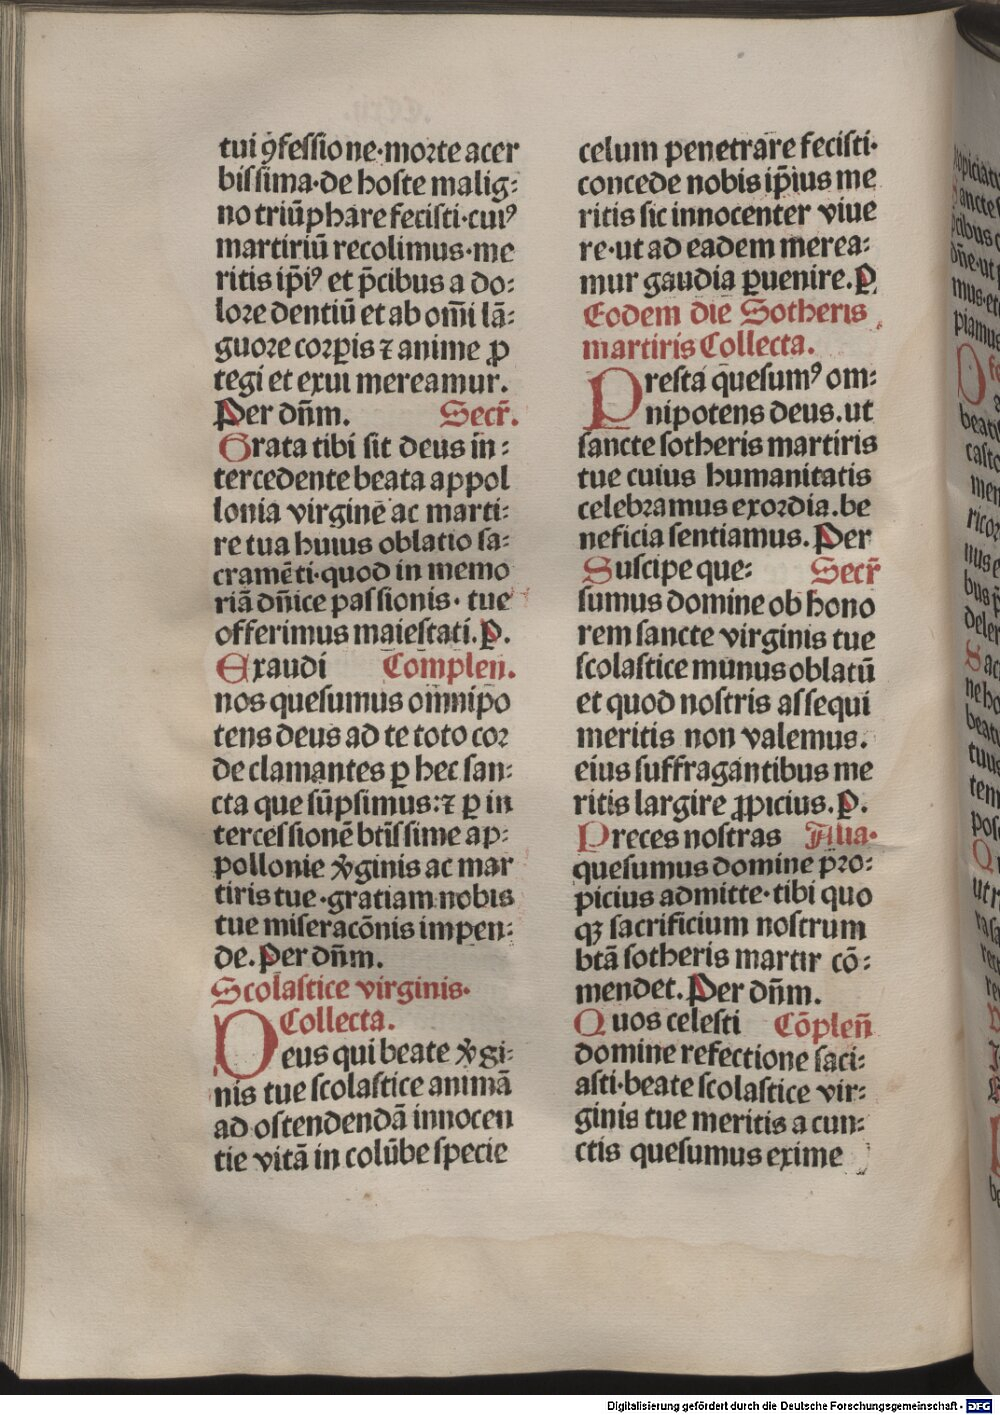 tui ꝯfessione·morte acer
bissima·de hoste malig:
no triūphare fecisti·cuiꝰ
martiriū recolimus·me
ritis ip̄iꝰ et p̄cibus a do:
lore dentiū et ab om̄i lā:
guore corꝑis ⁊ anime ꝓ
tegi et exui mereamur.
Per dn̄m. Secr̄.
Grata tibi sit deus in:
tercedente beata appol
lonia virginē ac marti:
re tua huius oblatio sa:
cramēti·quod in memo
riā dn̄ice passionis· tue
offerimus maiestati.P.
Exaudi Complen̄.
nos quesumus om̄nip̄o
tens deus ad te toto cor
de clamantes ꝑ hec san:
cta que sūpsimus:⁊ ꝑ in
tercessionē btīssime ap:
pollonie v̓ginis ac mar
tiris tue·gratiam nobis
tue miseracōnis impen:
de.Per dn̄m.
Scolastice virginis·
Collecta.
Deus qui beate v̓gi:
nis tue scolastice animā
ad ostendendā innocen
tie vitā in colūbe specie
celum penetrare fecisti·
concede nobis ip̄ius me
ritis sic innocenter viue
re·ut ad eadem merea:
mur gaudia ꝑuenire.P
Eodem die Sotheris
martiris Collecta.
Presta quesumꝰ om:
nipotens deus.ut
sancte sotheris martiris
tue cuius humanitatis
celebramus exordia.be
neficia sentiamus.Per
Suscipe que: Secr̄
sumus domine ob hono
rem sancte virginis tue
scolastice munus oblatū
et quod nostris assequi
meritis non valemus.
eius suffragantibus me
ritis largire ꝓpicius.P.
Preces nostras Alia·
quesumus domine pro:
picius admitte·tibi quo
qꝫ sacrificium nostrum
btā sotheris martir cō:
mendet.Per dn̄m.
Quos celesti Cōplen̄
domine refectione saci:
asti·beate scolastice vir:
ginis tue meritis a cun:
ctis quesumus exime
Digitalisierung gefördert durch die Deutsche Forschungsgemeinschaft - DFG